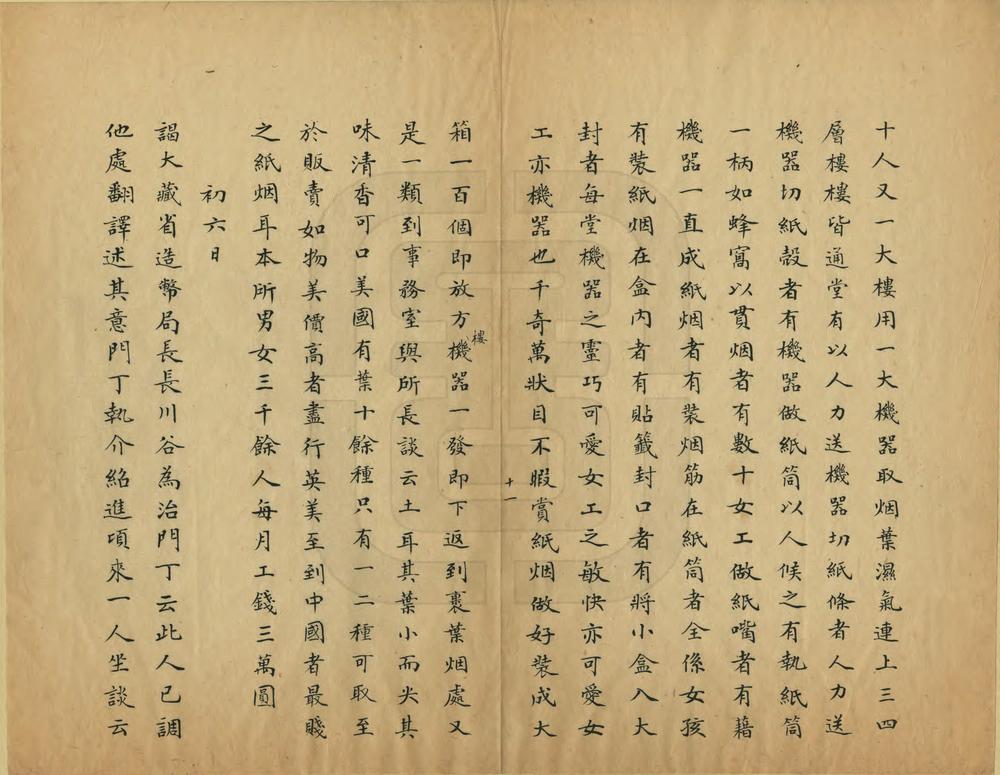 十人又一大樓用一大機器取烟葉濕氣連上三四
層樓樓皆通堂有以人力送機器切紙條者人力送
機器切紙殼者有機器做紙筒以人候之有執紙筒
一柄如蜂窩以貫烟者有數十女工做紙嘴者有藉
機器一直成紙烟者有裝烟筋在紙筒者全係女孩
有裝紙烟在盒內者有貼籤封口者有將小盒入大
封者每堂機器之靈巧可愛女工之敏快亦可愛女
工亦機器也千奇萬狀目不暇賞紙烟做好裝成大
十一
箱一百個即放方機樓器一發即下返到裹葉烟處又
是一類到事務室與所長談云土耳其葉小而尖其
味清香可口美國有葉十餘種只有一二種可取至
於販賣如物美價高者盡行英美至到中國者最賤
之紙烟耳本所男女三千餘人每月工錢三萬圓
初六日
謁大藏省造幣局長長川谷為治門丁云此人已調
他處翻譯述其意門丁執介紹進頃來一人坐談云